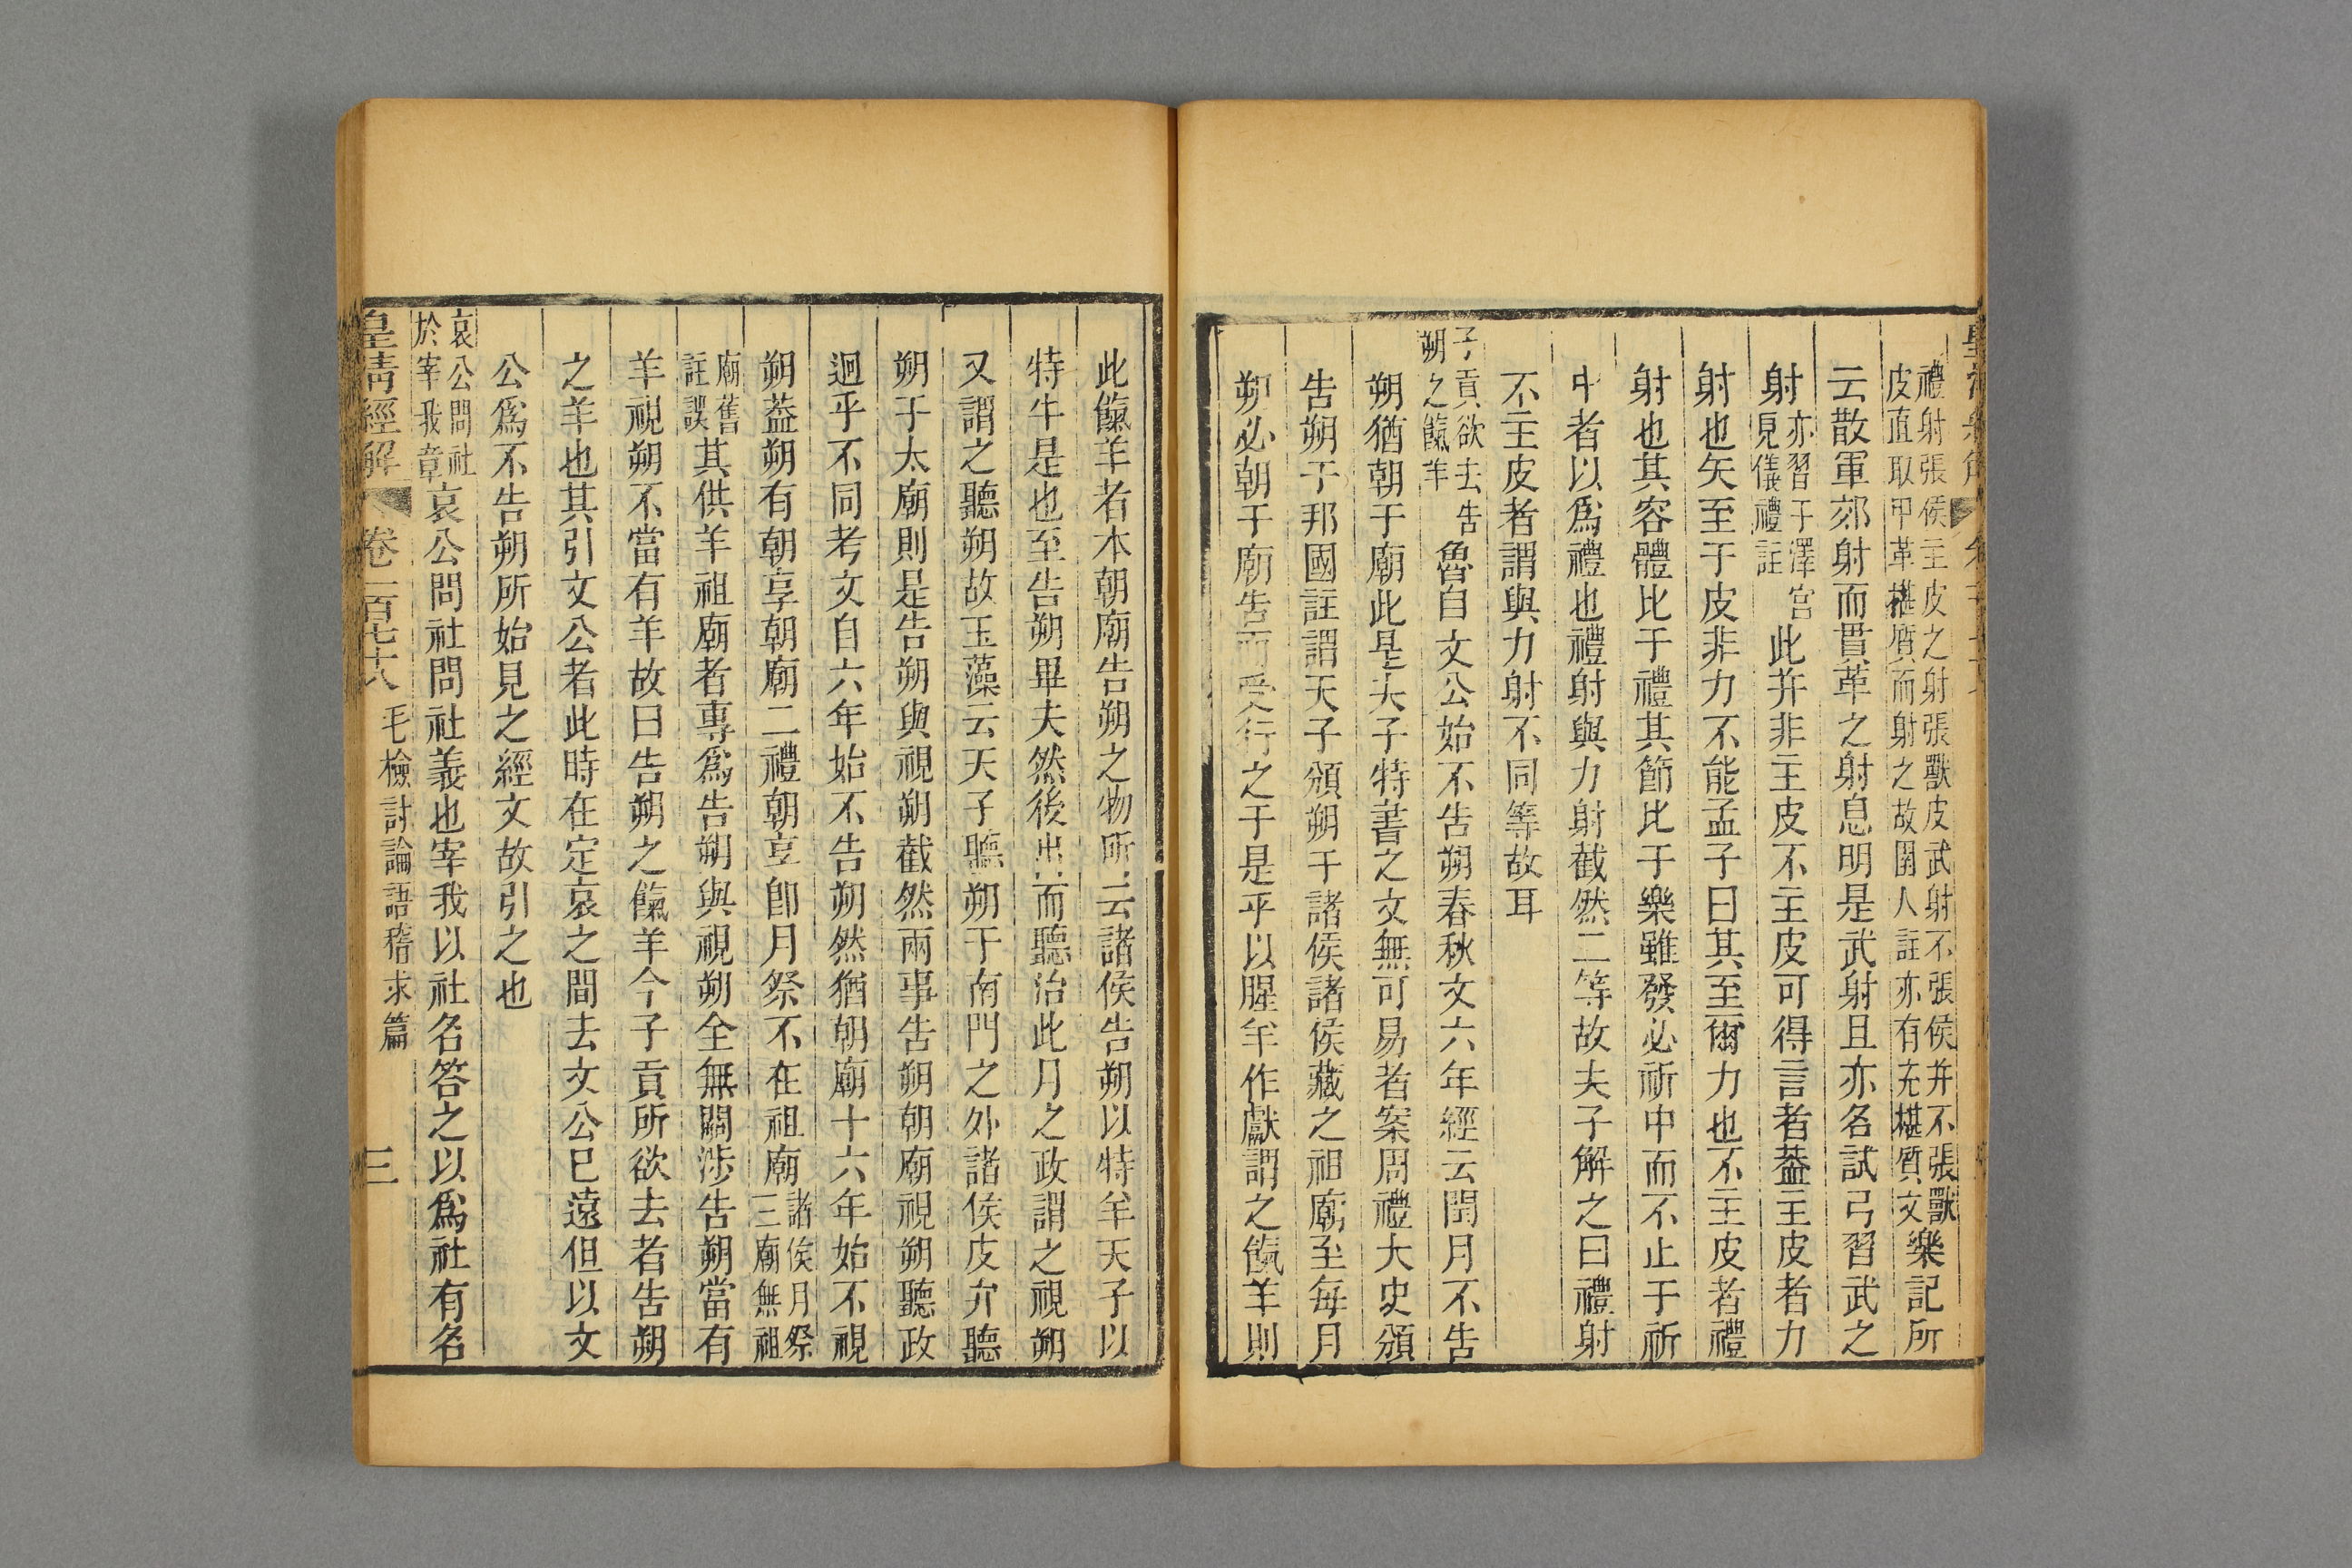 禮射張侯主皮之射張獸皮武射不張侯并不張獸
皮直取甲革椹質而射之故圉人註亦有充椹質文
樂記所
云散軍郊射而貫革之射息明是武射且亦名試弓習武之
射
亦習于澤宮
見儀禮註
此并非主皮不主皮可得言者蓋主皮者力
射也矢至于皮非力不能孟子曰其至爾力也不主皮者禮
射也其容體比于禮其節比于樂雖發必祈中而不止于祈
中者以爲禮也禮射與力射截然二等故夫子解之曰禮射
不主皮者謂與力射不同等故耳
子貢欲去告
朔之餼羊
魯自文公始不告朔春秋文六年經云閏月不告
朔猶朝于廟此是夫子特書之文無可易者案周禮大史頒
告朔于邦國註謂天子頒朔于諸侯諸侯藏之祖廟至每月
朔必朝于廟告而受行之于是乎以腥羊作獻謂之餼羊則
此餼羊者本朝廟告朔之物所云諸侯告朔以特羊天子以
特牛是也至告朔畢夫然後出而聽治此月之政謂之視朔
又謂之聽朔故玉藻云天子聽朔于南門之外諸侯皮弁聽
朔于太廟則是告朔與視朔截然兩事告朔朝廟視朔聽政
迥乎不同考文自六年始不告朔然猶朝廟十六年始不視
朔蓋朔有朝享朝廟二禮朝享卽月祭不在祖廟
諸侯月祭
三廟無祖
廟舊
註誤
其供羊祖廟者專爲告朔與視朔全無關涉告朔當有
羊視朔不當有羊故曰告朔之餼羊今子貢所欲去者告朔
之羊也其引文公者此時在定哀之間去文公已遠但以文
公爲不告朔所始見之經文故引之也
哀公問社
於宰我章
哀公問社問社義也宰我以社名答之以爲社有名
皇清經解 卷一百七十八 毛檢討論語稽求篇 三